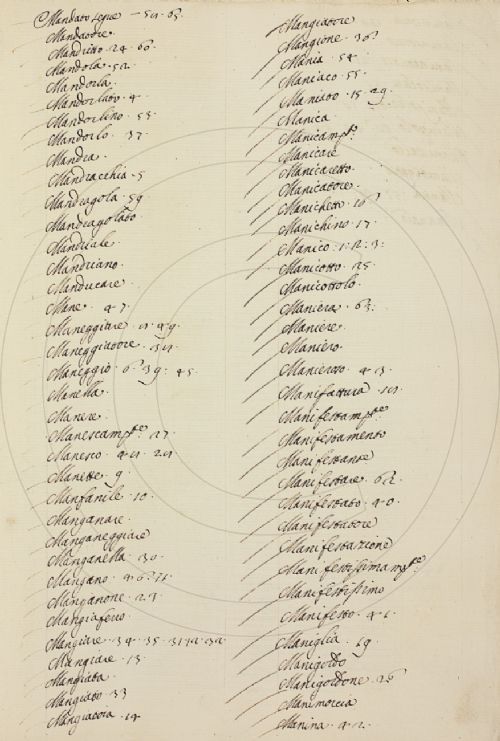 Mandato legre
Mandatore.
Mandritto 24. 60.
Mandola. 52.
Mandorla.
Mandorlato. 4.
Mandorlino. 55.
Mandorlo. 37.
Mandra.
Mandracchia. 5
Mandragola. 59
Mandragolato
Mandriale
Mandriano.
Manducare.
Mane. 47.
Maneggiare
Maneggiatore.
Maneggio. 39. 45
Manella.
Manere.
Manescamᵗᵉ. 27.
Manesco.
Manette. 9.
Manfanile. 10.
Manganare.
Manganeggiare
Manganella. 30.
Mangano.
Manganone. 23.
Mangiaferro
Mangiare. 34. 35.
Mangiare. 13.
Mangiata.
Mangiato 33
Mangiatoia. 14
Mangiatore
Mangione. 36?
Mania. 54.
Maniaco. 55.
Maniato. 15. 29.
Manica
Manicamᵗᵒ.
Manicare
Manicaretto.
Manicatore.
Manichetto. 10?
Manichino. 17.
Manico. 1. 2. 3.
Manicotto. 25.
Manicottolo.
Maniera. 63.
Maniere.
Maniero.
Manieroso. 43.
Manifattura.
Manifestamᵗᵉ.
Manifestamento
Manifestante
Manifestare. 62.
Manifestato. 40.
Manifestatore
Manifestazione
Manifestissimamᵗᵉ.
Manifestissimo
Manifesto. 41.
Maniglia. 19.
Manigoldo
Manigoldone. 26
Manimorcia
Manina. 42.